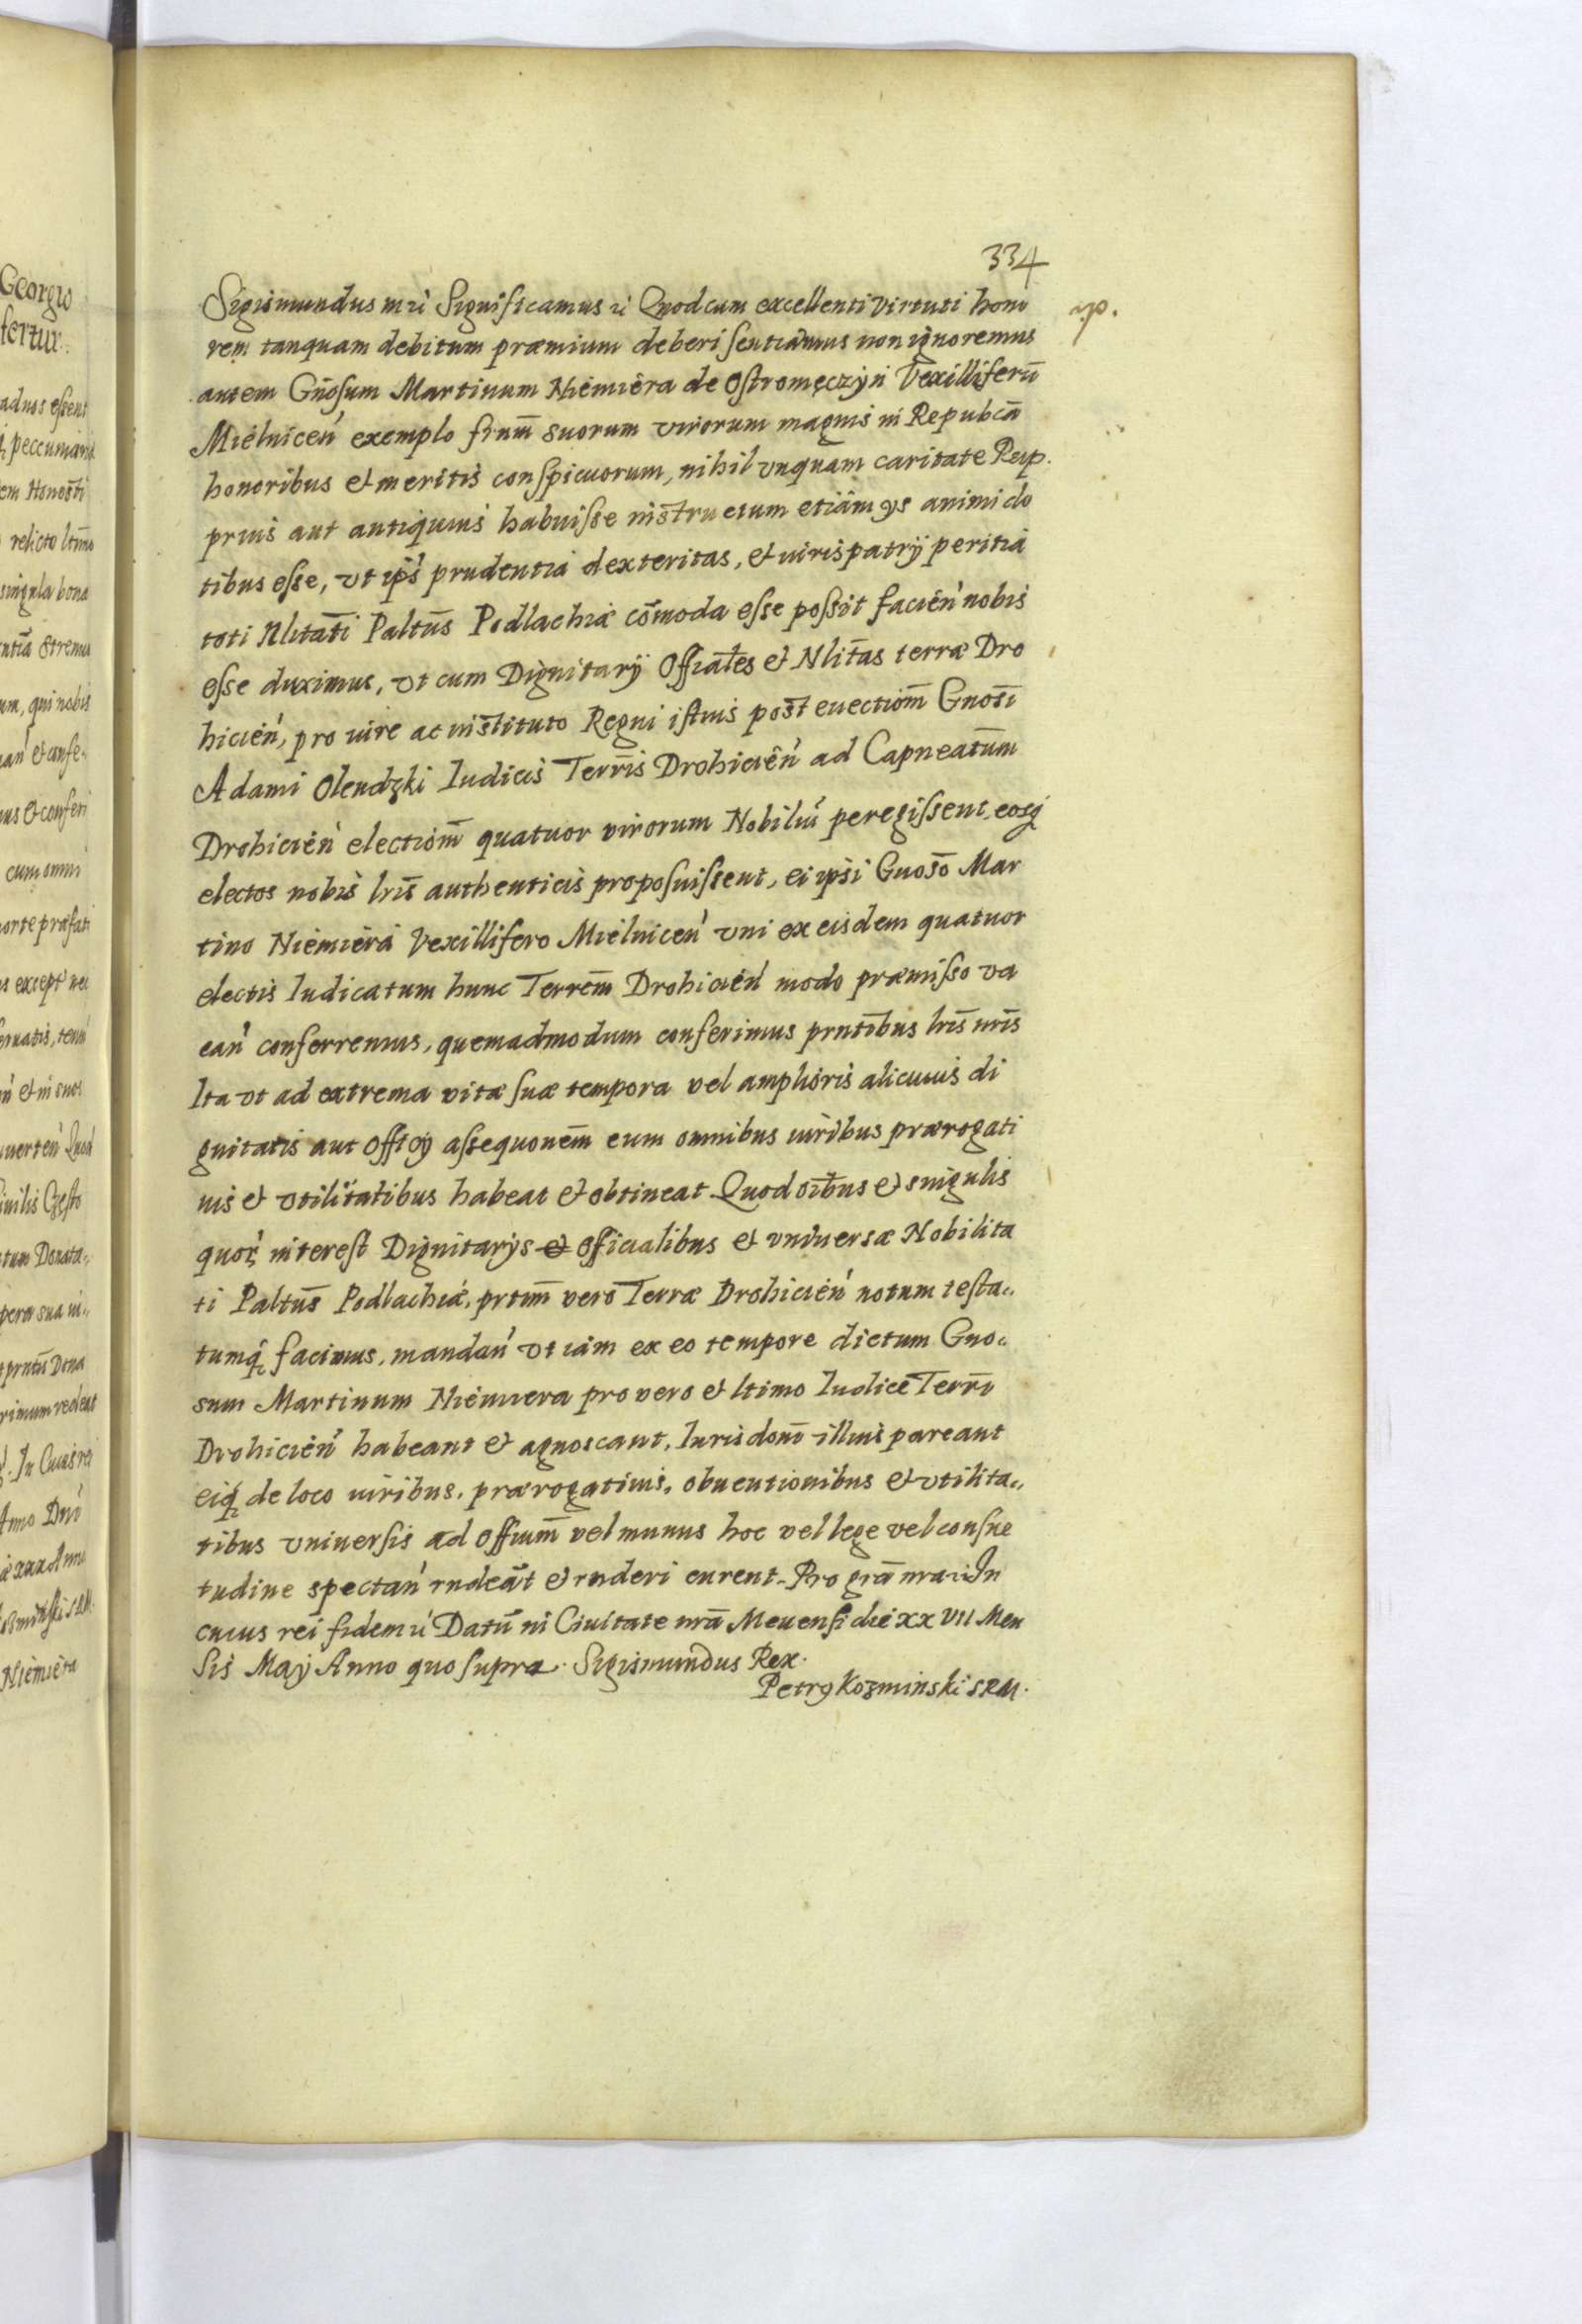 334
Sigismundus etc Significamus etc Quod cum excellenti virtuti hono
rem tanquam debitum præmium deberi sentiamus non ignoremus
autem Gnosum Martinum Niemiera de Ostromęczyn Vexilliferū
Mielnicen̄ exemplo frum̄ suorum virorum magnis in Repubcā
honoribus et meritis conspicuorum, nihil vnquam caritate Reip.
prius aut antiquius habuisse instructum etiam ys animi do
tibus esse, vt ips̄ prudentia dexteritas, et iuris patrij peritia
toti Nlitati Paltus̄ Podlachiæ com̄oda esse possit facien̄ nobis
esse duximus, vt cum Dignitarij Offiales et Nlitas terræ Dro
hicien̄, pro iure ac instituto Regni istius post euectiom̄ Gnosi
Adami Olendzki Iudicis Terris̄ Drohicien̄ ad Capneatum̄
Drohicien̄ electiom̄ quatuor virorum Nobiliū peregissent eosq
electos nobis lris̄ authenticis proposuissent, ei ipsi Gnoso Mar
tino Niemiera Vexillifero Mielnicen̄ vni ex eisdem quatuor
electis Iudicatum hunc Terrem̄ Drohicien̄ modo præmisso va
can̄ conferremus, quemadmodum conferimus prntibus lris̄ nris̄
Ita vt ad extrema vitæ suæ tempora vel amplioris alicuius di
gnitatis aut Officij assequonem̄ eum omnibus iuribus prærogati
uis et vtilitatibus habeat et obtineat Quod oibus et singulis
quor. interest Dignitarys et Officialibus et vniuersæ Nobilita
ti Paltus̄ Podlachiæ, prtim̄ vero Terræ Drohicien̄ notum testa„
tumq facimus, mandan̄ vt iam ex eo tempore dictum Gno„
sum Martinum Niemiera pro vero et ltimo Iudice Terri
Drohicien̄ habeant et agnoscant, Iurisdoni illius pareant
eiq de loco iuribus, prærogatiuis, obuentionibus et vtilita„
tibus vniuersis ad Offium̄ vel munus hoc vel lege vel consue
tudine spectan̄ rndeāt et rnderi curent. Pro grā nra etc In
cuius rei fidem etc Datū in Ciuitate nrā Meuensi die xx VII Men
sis Maij Anno quo supra. Sigismundus Rex.
Petrg Kozminski SRM.